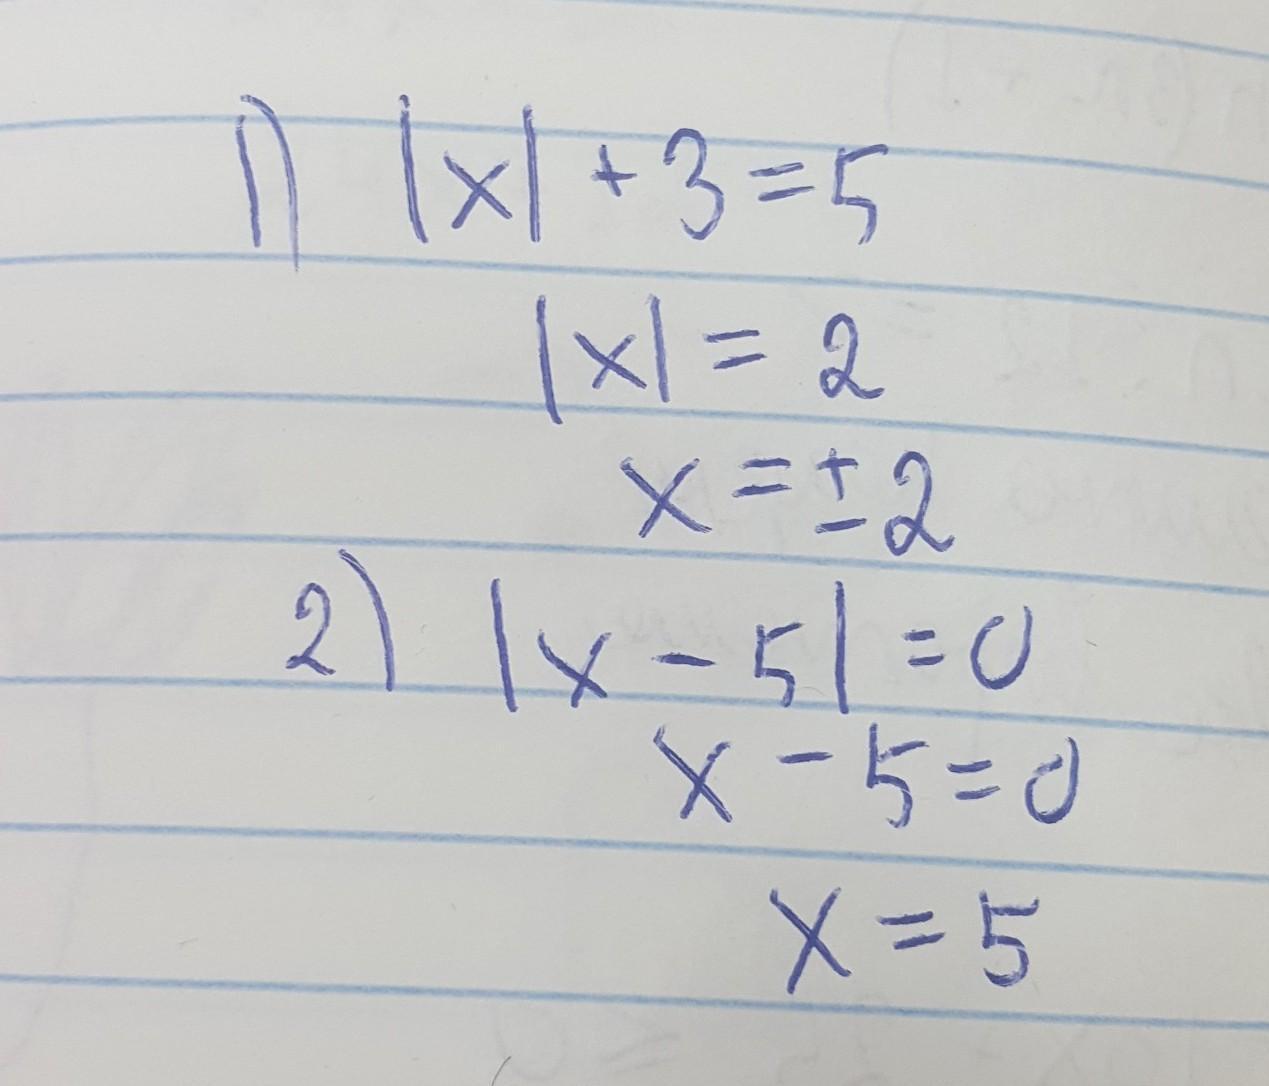 1) |x| + 3 = 5
|x| = 2
x = ± 2
2) |x - 5| = 0
x - 5 = 0
x = 5